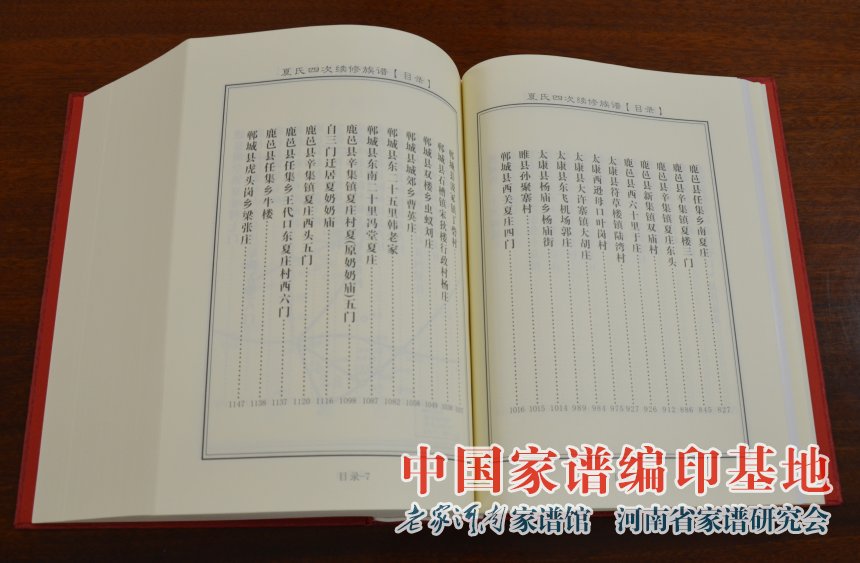 夏氏四次续修族谱【目录】
鹿邑县任集乡南夏庄……827
鹿邑县辛集镇夏楼三门……845
鹿邑县辛集镇夏庄东头……886
鹿邑县新集镇双庙村……912
鹿邑县西六十里于庄……926
太康县符草楼镇陆湾村……927
太康西逊母口叶岗村……975
太康县大许寨镇大胡庄……984
太康县东飞机场郭庄……989
太康县杨庙乡杨庙街……1014
睢县孙聚寨村……1015
郸城县西关夏庄四门……1016
夏氏四次续修族谱【目录】
郸城县石槽镇宋狄楼行政村杨庄……1038
郸城县双楼乡虫蚁刘庄……1049
郸城县城郊乡曹英庄……1058
郸城县东二十五里韩老家……1082
郸城县东南二十里冯堂夏庄……1087
鹿邑县辛集镇夏庄村夏(原奶奶庙)五门……1098
自三门迁居夏奶奶庙……1116
鹿邑县辛集镇夏庄村西头五门……1120
鹿邑县任集乡王代口东夏庄村西六门……1137
鹿邑县任集乡牛楼……1138
郸城县虎头岗乡梁张庄……1147
目录-7
中国家谱编印基地
老家河南家谱馆 河南省家谱研究会